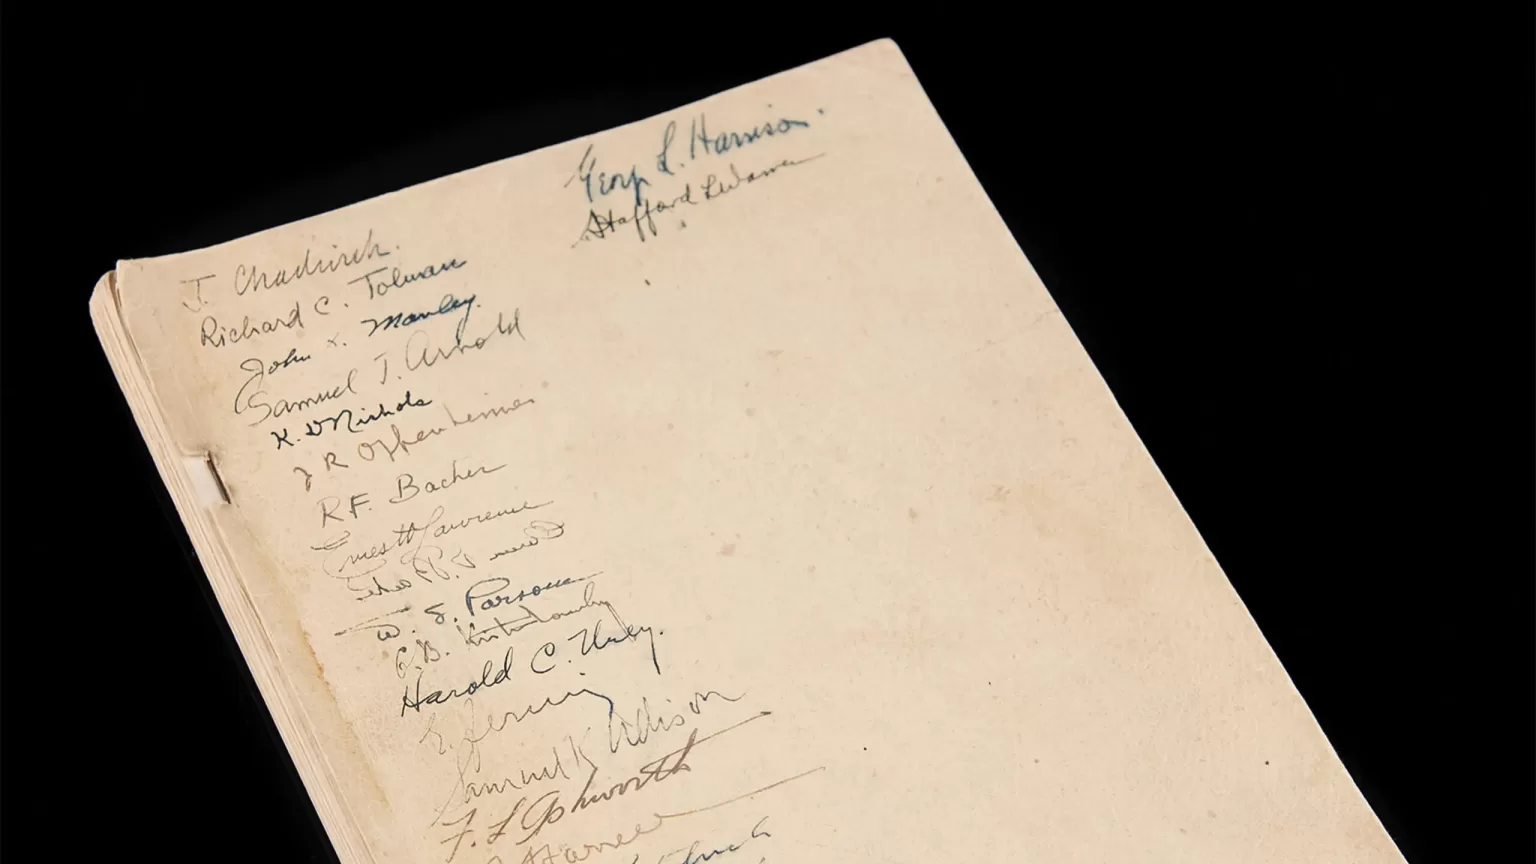 George L. Harrison.
Stafford L Warren
J. Chadwick.
Richard C. Tolman
John H. Manley.
Samuel T. Arnold
K. D. Nichols
J R Oppenheimer
R.F. Bacher
Ernest O Lawrence
W. S. Parsons
G.B. Kistiakowsky
Harold C. Urey.
E. Fermi
Samuel K Allison
F. L. Ashworth